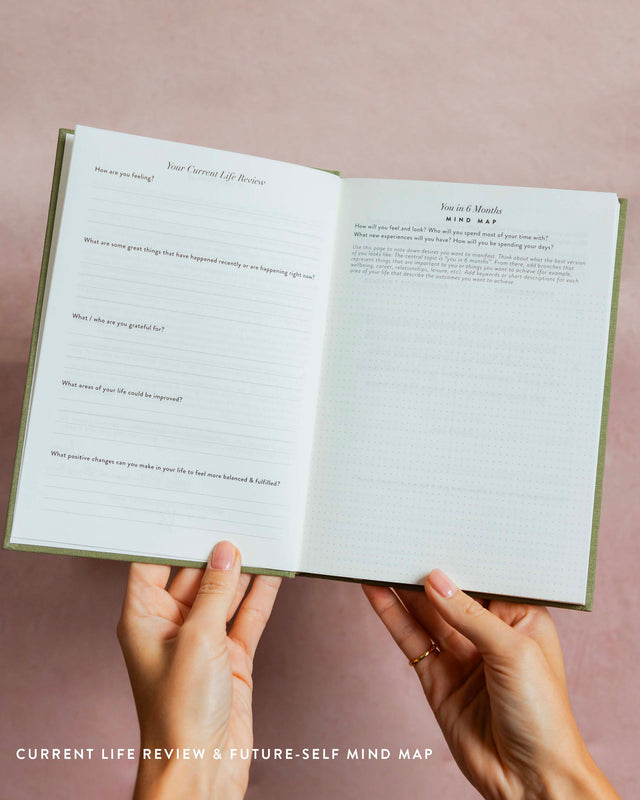 Your Current Life Review
How are you feeling?
What are some great things that have happened recently or are happening right now?
What / who are you grateful for?
What areas of your life could be improved?
What positive changes can you make in your life to feel more balanced & fulfilled?
You in 6 Months
MIND MAP
How will you feel and look? Who will you spend most of your time with?
What new experiences will you have? How will you be spending your days?
Use this page to note down desires you want to manifest. Think about what the best version
of you looks like. The central topic is "you in 6 months". From there, add branches that
represent things that are important to you or things you want to achieve (for example,
wellbeing, career, relationships, leisure, etc). Add keywords or short descriptions for each
area of your life that describe the outcomes you want to achieve.
CURRENT LIFE REVIEW & FUTURE-SELF MIND MAP